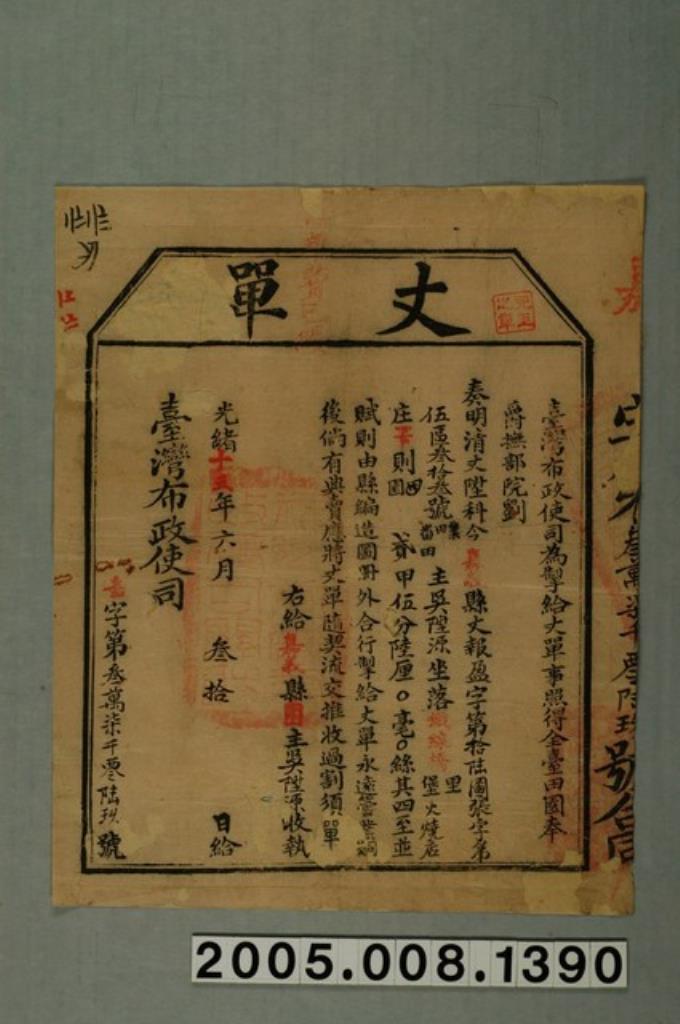 丈單
臺灣布政使司為掣給丈單事照得全臺田園奉
爵撫部院劉
奏明清丈陞科今嘉義縣丈報盈字第拾陸圖張字第
伍區叁拾叁號田主吳陞源坐落鐵線橋里堡火燒店
庄下則園貳甲伍分陸厘○毫○絲其四至並
賦則由縣編造圖冊外合行掣給丈單永遠管業嗣
後倘有典賣應將丈單隨契流交推收過割須單
右給嘉義縣園主吳陞源收執
光緒十五年六月叁拾日給
臺灣布政使司
嘉字第叁萬柒千零陸玖號
2005.008.1390